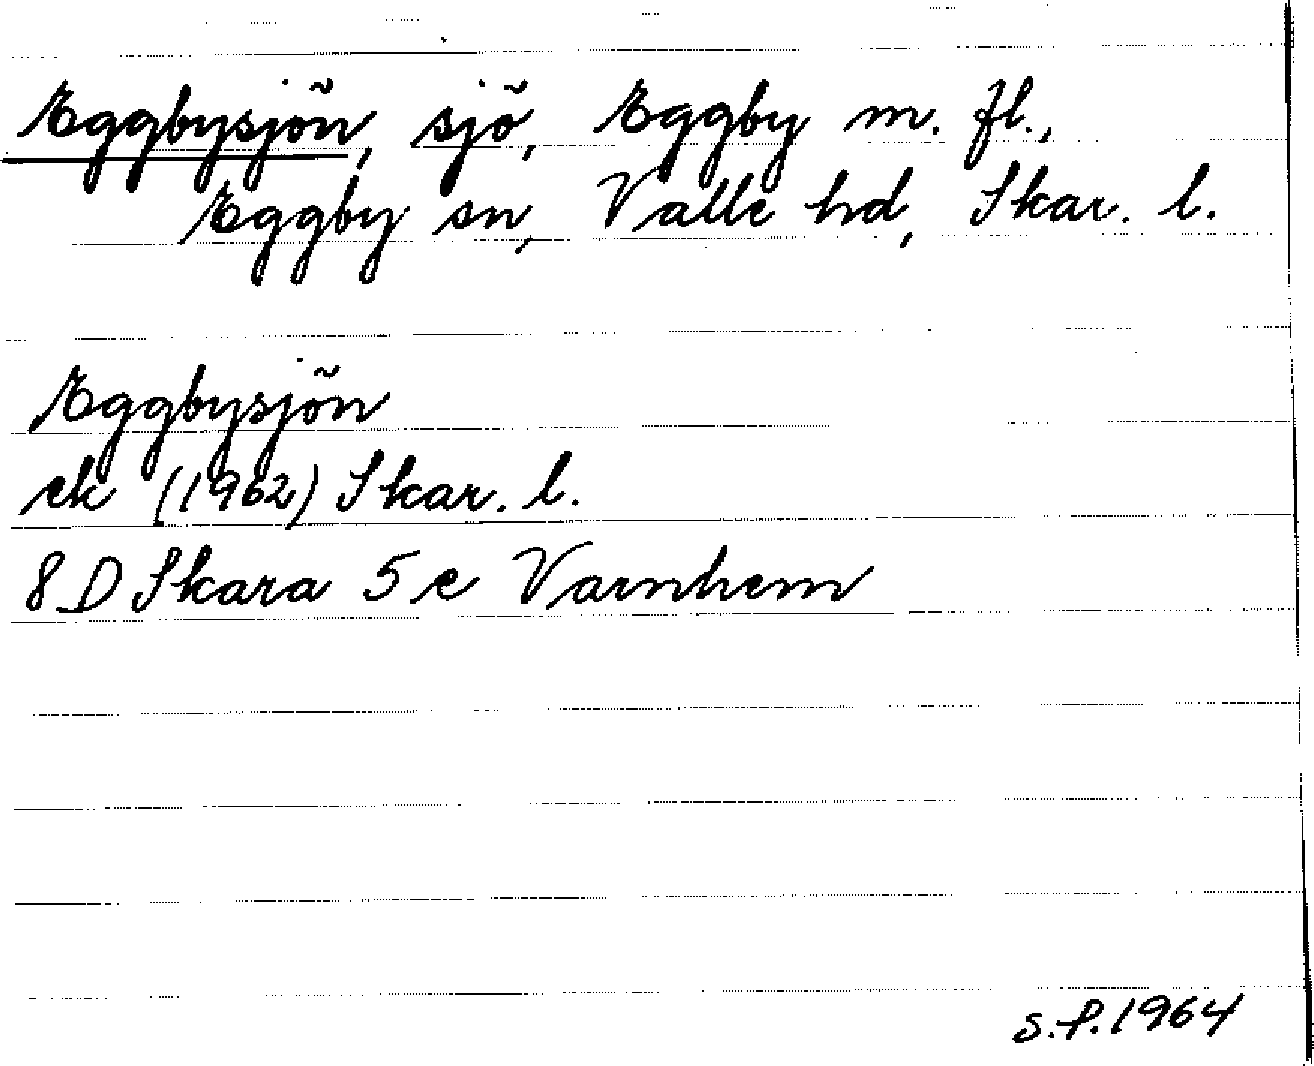 Eggbysjön, sjö, Eggby m. fl.,
Eggby sn, Valle hd, Skar. l.
Eggbysjön
ek (1962) Skar. l.
8 D Skara 5 e Varnhem
S.P. 1964